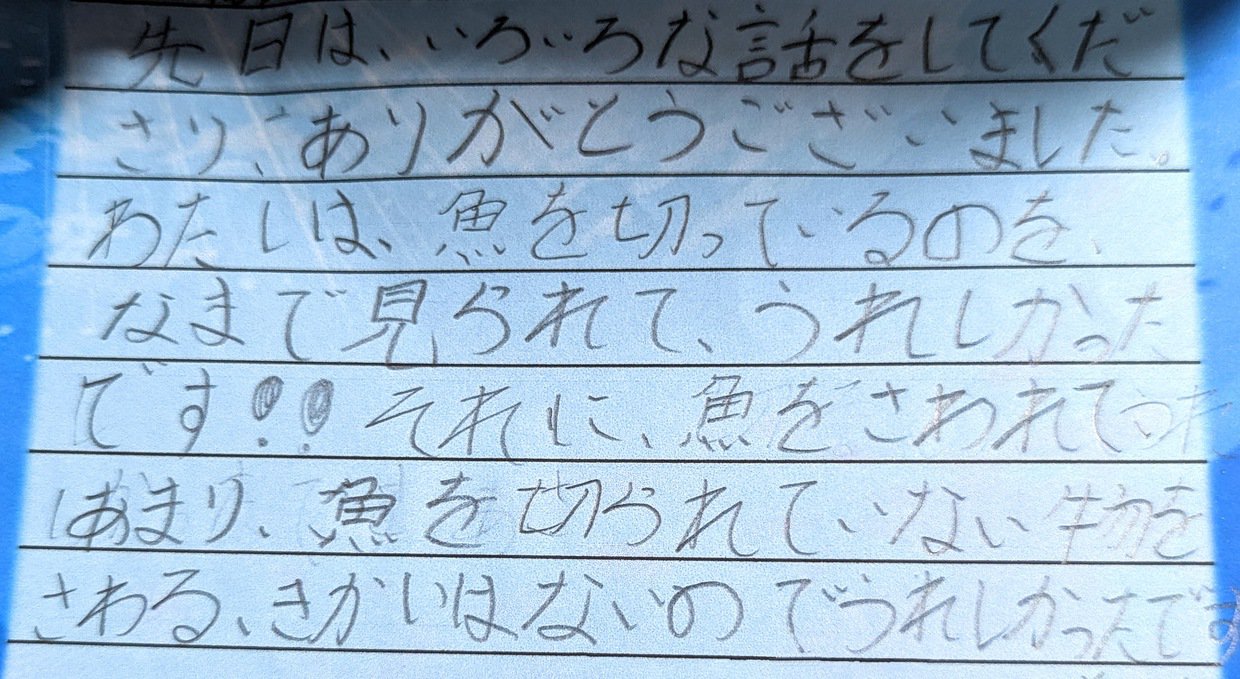 先日は、いろいろな話をしてくだ
さり、ありがとうございました。
わたしは、魚を切っているのを、
なまで見られて、うれしかった
です!!それに、魚をさわれて
あまり、魚を切られていない生物を
さわる、きかいはないのでうれしかったです